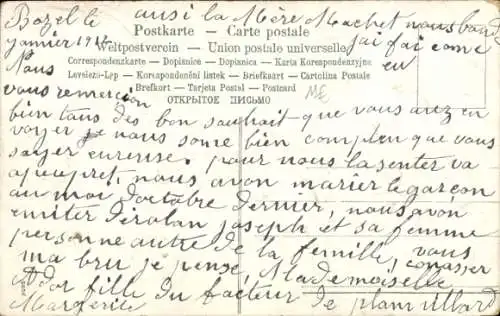 Bozel le
janvier 1912
ausi la Mère Machet nous
j'ai fai come
en
Postkarte – Carte postale
Weltpostverein – Union postale universelle
Correspondenzkarte – Dopisnice – Dopisnica – Karta Korespondenzyjna
Levelező-Lap – Korespondenční listek – Briefkaart – Cartolina Postale
Brefkort – Tarjeta Postal – Postcard
ОТКРЫТОЕ ПИСЬМО
Nous
vous remercion
bien tous des bon souhait que vous avez en
voyer je nous some bien que vous
sayer eureuse. pour nous la senter va
apeupret, nous avon marier le garçon
au moi d'octobre dernier, nous avon
Joseph et sa femme
personne autre de la femille, vous
ma bru je pense Mademoiselle
fille du facteur de planvillard
Margerite